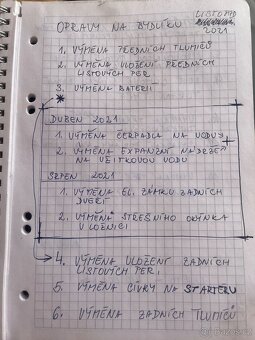 OPRAVY NA BYDLÍKU LISTOPAD 2021
1. VÝMĚNA PŘEDNÍCH TLUMIČŮ
2. VÝMĚNA ULOŽENÍ PŘEDNÍCH
LISTOVÝCH PER.
3. VÝMĚNA BATERIÍ
DUBEN 2021
1. VÝMĚNA ČERPADLA NA VODU
2. VÝMĚNA EXPANZNÍ NÁDRŽE
NA UŽITKOVOU VODU
SRPEN 2021
1. VÝMĚNA EL. ZÁMKU ZADNÍCH
DVEŘÍ
2. VÝMĚNA STŘEŠNÍHO OKÝNKA
V LOŽNICI
4. VÝMĚNA ULOŽENÍ ZADNÍCH
LISTOVÝCH PER.
5 VÝMĚNA CÍVKY NA STARTERU
6. VÝMĚNA ZADNÍCH TLUMIČŮ